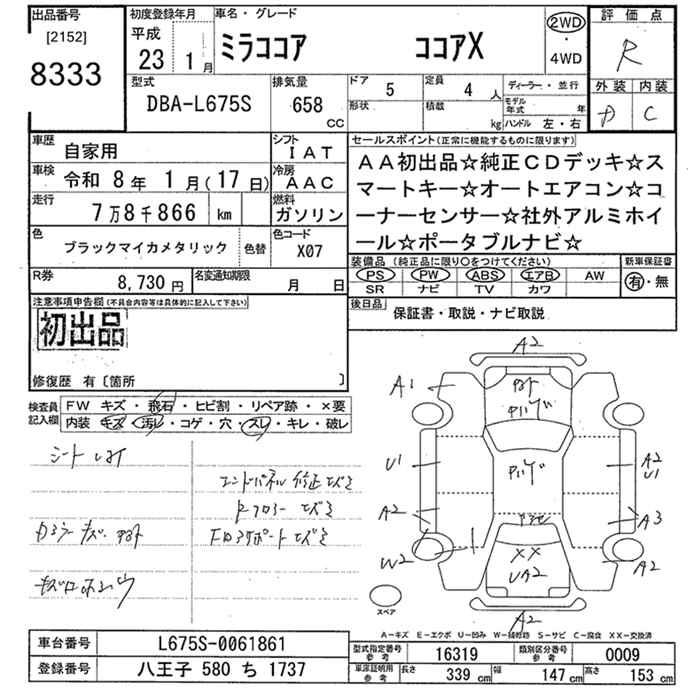 出品番号 [2152] 8333
初度登録年月 平成 23年 1月
車名・グレード ミラココア ココアX
2WD・4WD
評価点 R
外装 内装 C
型式 DBA-L675S
排気量 658 CC
ドア 5 形状
定員 4 人 積載 kg
ディーラー・並行
モデル年式 年
ハンドル 左・右
車歴 自家用
シフト IAT
車検 令和 8年 1月(17日)
冷房 AAC
走行 7万8千866 km
燃料 ガソリン
色 ブラックマイカメタリック 色替
色コード X07
R券 8,730円
名変通知期限 月 日
セールスポイント(正常に機能するものに限り)
AA初出品☆純正CDデッキ☆ス
マートキー☆オートエアコン☆コ
ーナーセンサー☆社外アルミホイ
ール☆ポータブルナビ☆
装備品 (純正品に限り○をつけてください)
PS PW ABS エアB AW
SR ナビ TV カワ
新車保証書 有・無
後日品 保証書・取説・ナビ取説
注意事項申告欄(不具合内容等は具体的に記入して下さい)
初出品
修復歴 有〔箇所 〕
検査員記入欄
FW キズ・飛石・ヒビ割・リペア跡・×要
内装 キズ・汚レ・コゲ・穴・スレ・キレ・破レ
A2
A1
U1
A2
W2
A2
U1
A3
A2
XX
UA2
A2
スペア
A-キズ E-エクボ U-凹み W-補修跡 S-サビ C-腐食 XX-交換済
車台番号 L675S-0061861
登録番号 八王子 580 ち 1737
型式指定番号参考 16319
類別区分番号参考 0009
車庫証明用参考 長さ 339 cm 幅 147 cm 高さ 153 cm